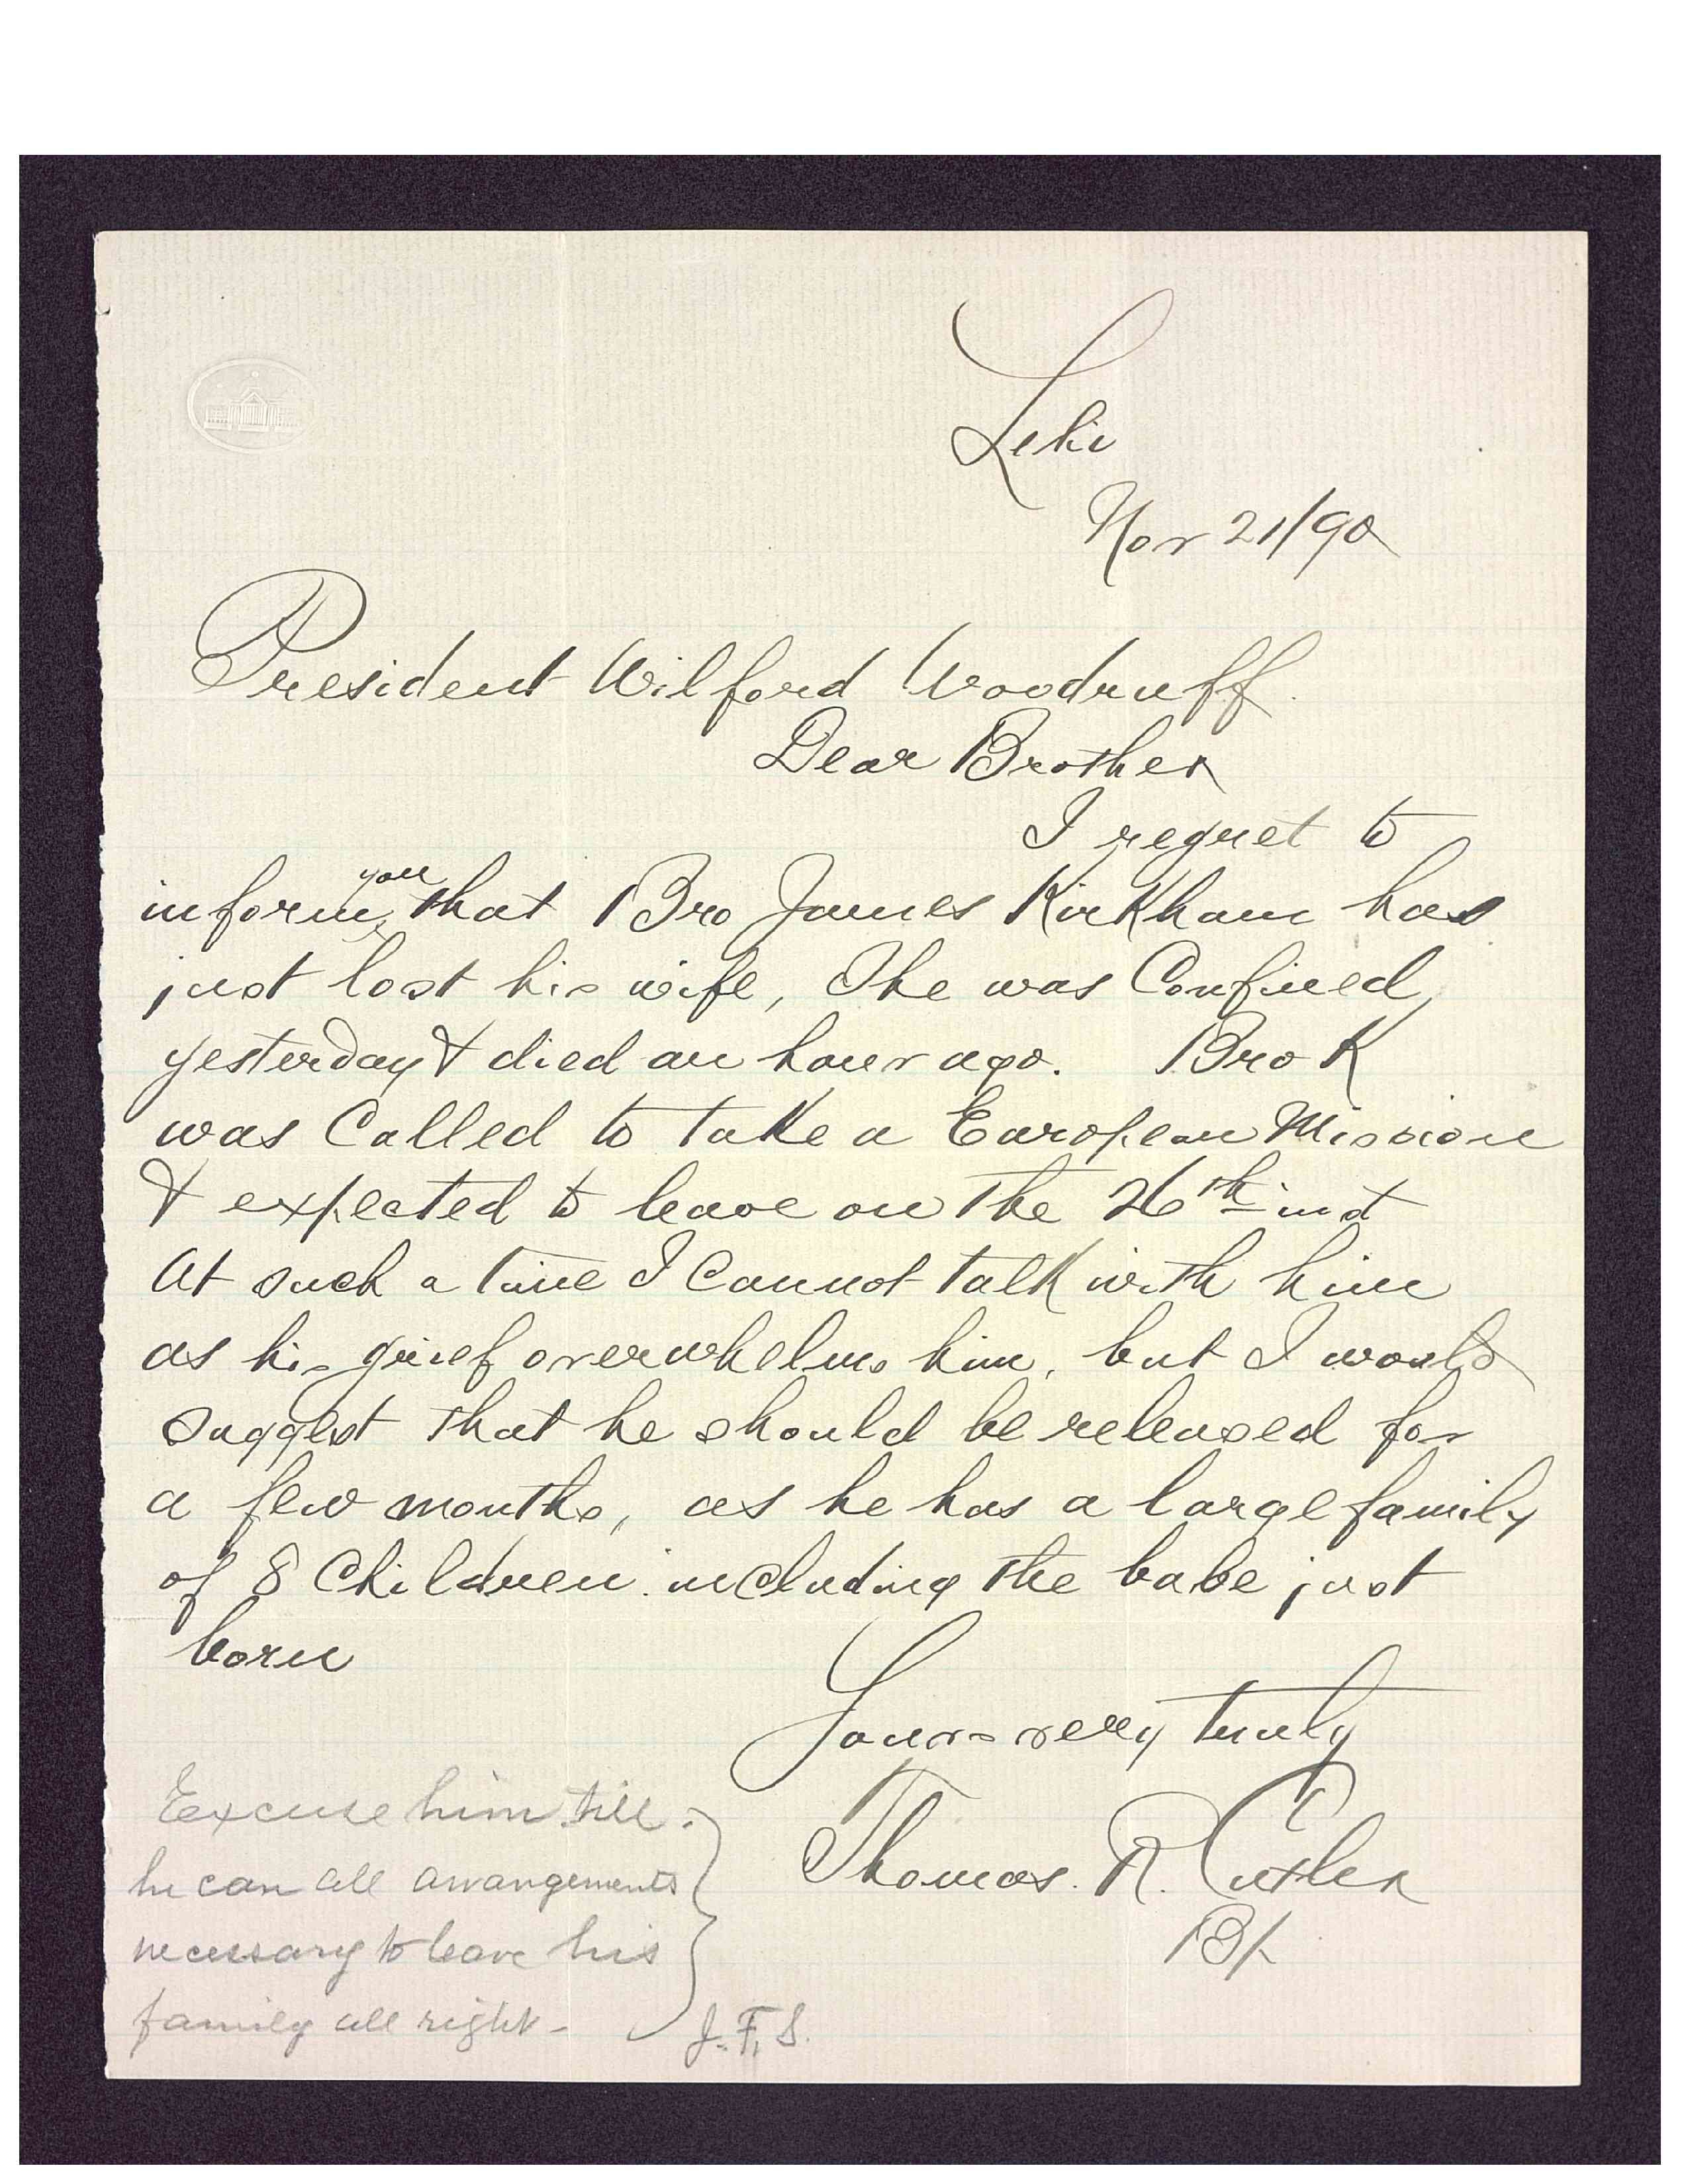 Lehi
Nov 21/90
President Wilford Woodruff.
Dear Brother
I regret to
inform you that Bro James Kirkham has
just lost his wife, She was Confined
yesterday & died an hour ago. Bro K
was Called to take a European Mission
& expected to leave on the 26th inst
At such a time I Cannot talk with him
as his grief overwhelms him, but I would
suggest that he should be released for
a few months, as he has a large family
of 8 Children including the babe just
born
Yours very truly
Thomas. R. Cutler
Bp
Excuse him till
he can all arrangements
necessary to leave his
family all right -
J. F. S.